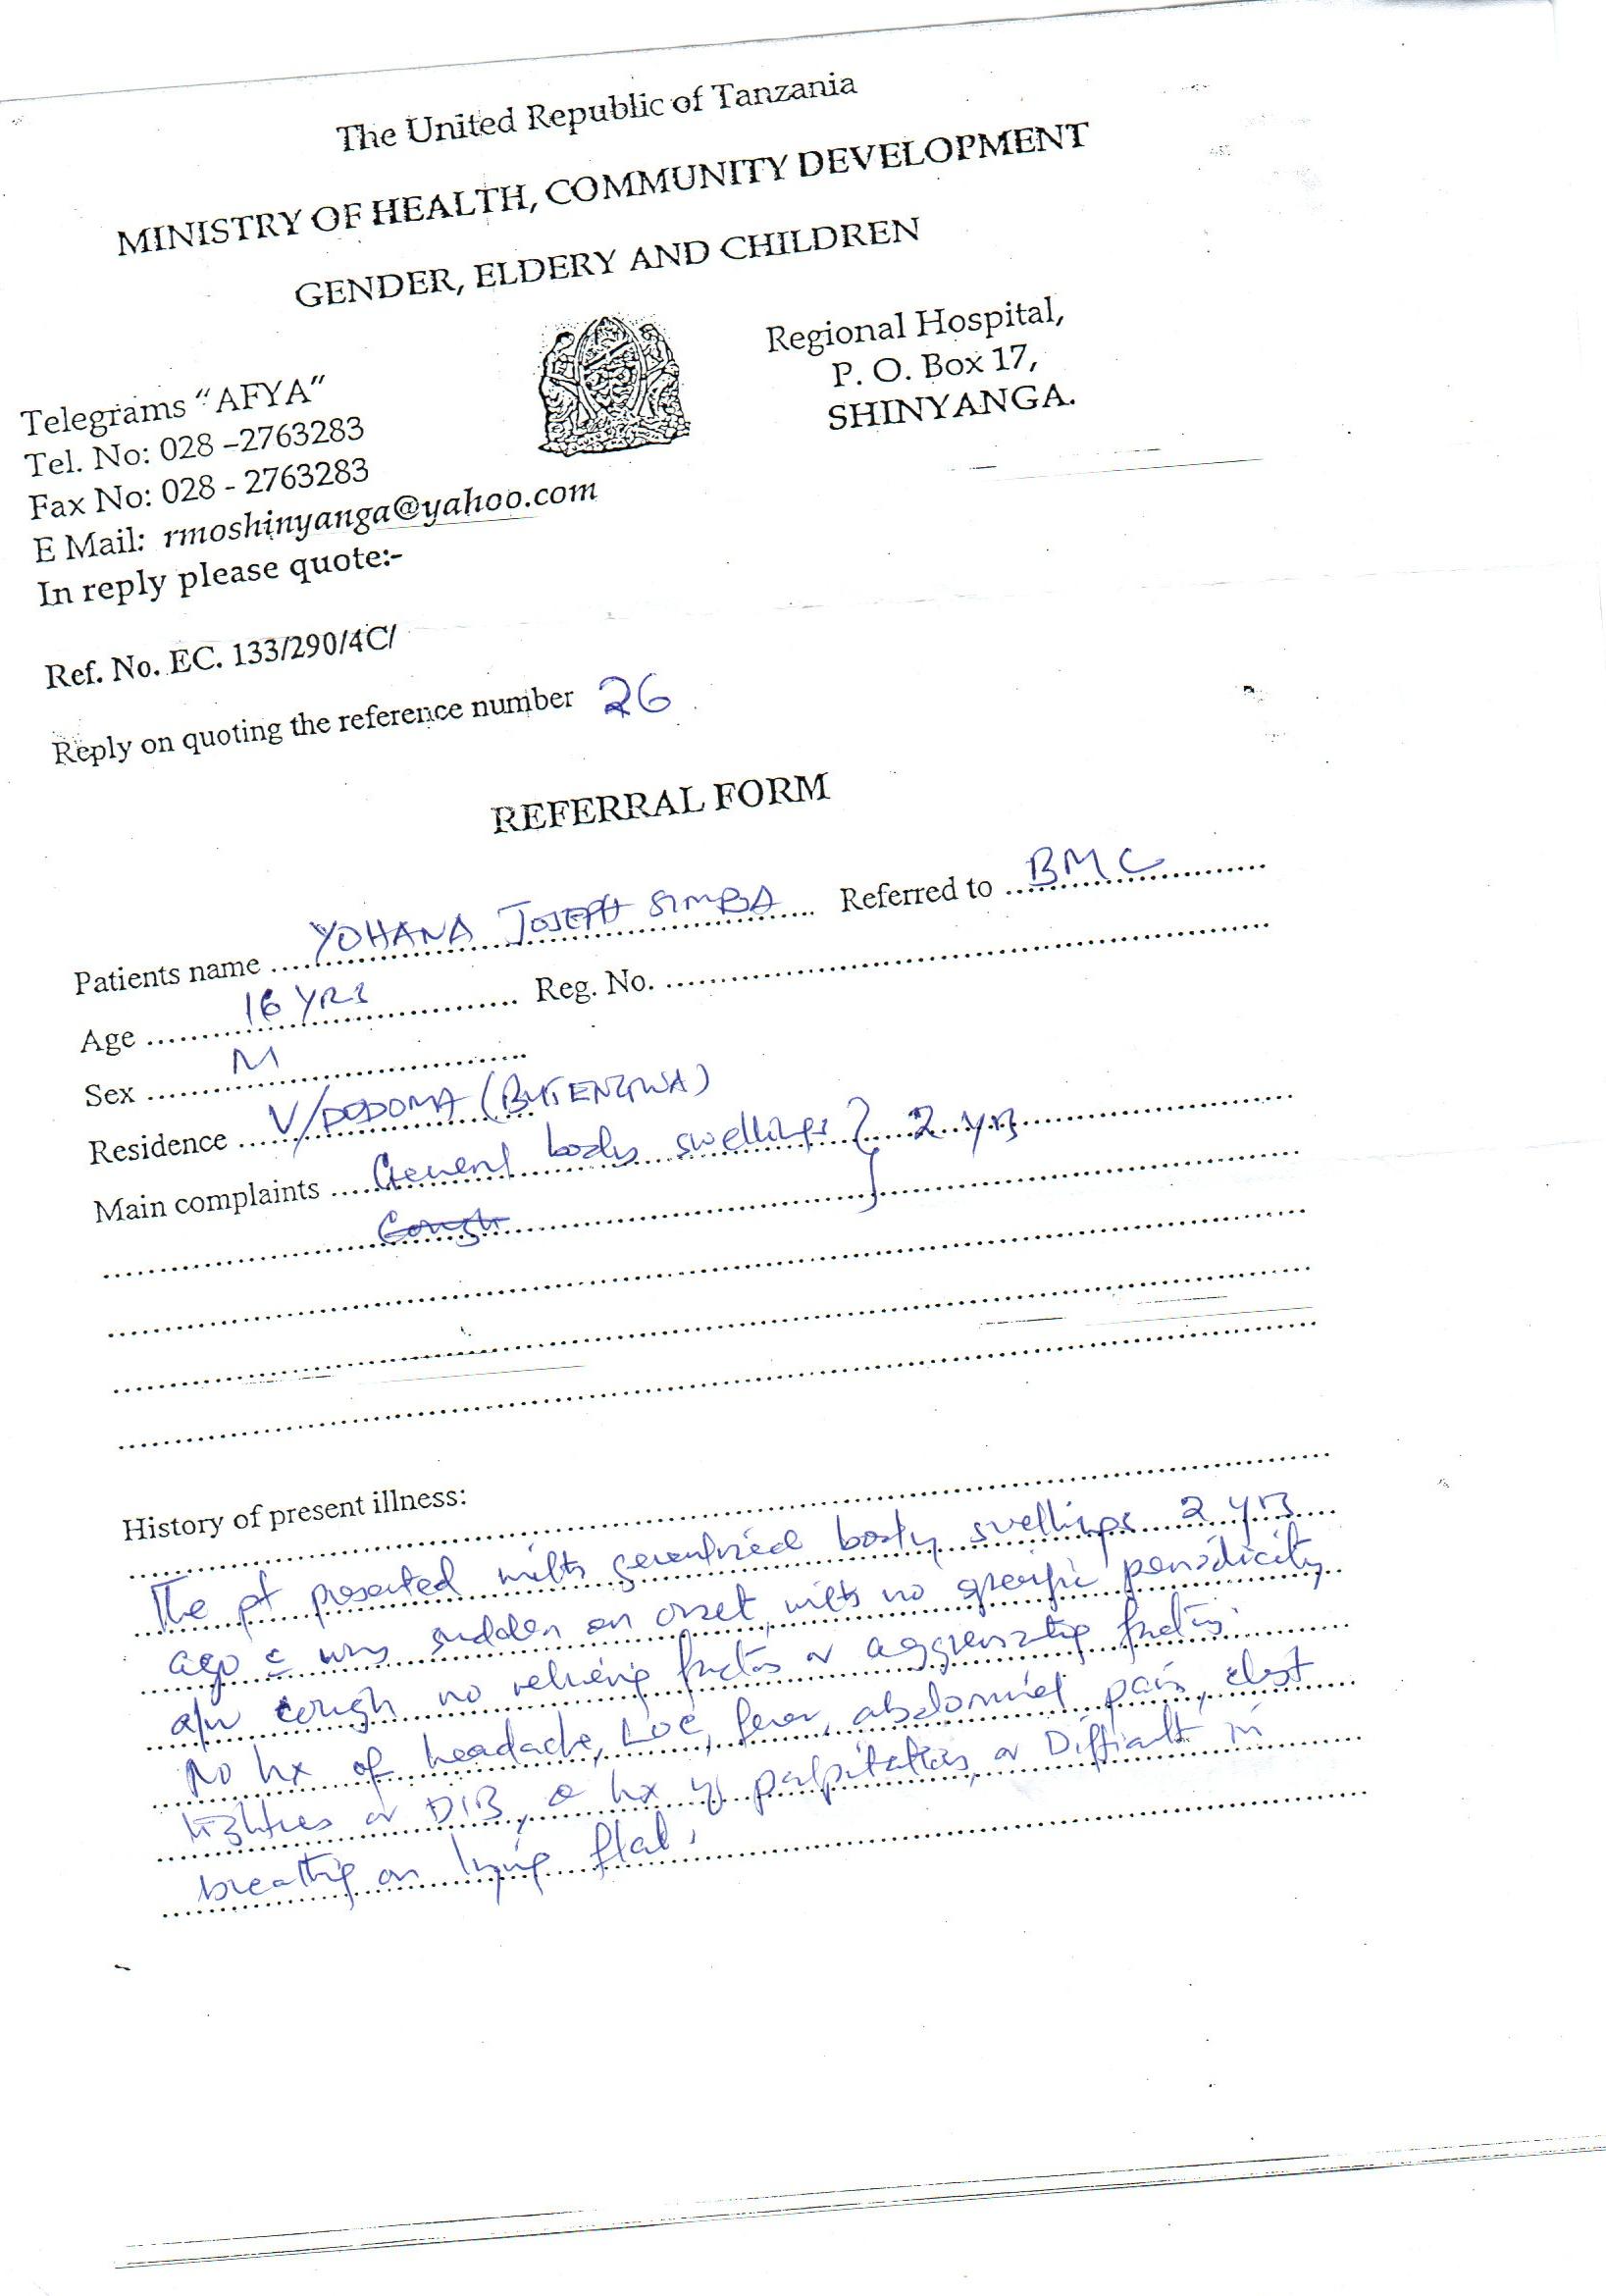 The United Republic of Tanzania
MINISTRY OF HEALTH, COMMUNITY DEVELOPMENT
GENDER, ELDERY AND CHILDREN
Regional Hospital,
P. O. Box 17,
SHINYANGA.
Telegrams "AFYA"
Tel. No: 028 –2763283
Fax No: 028 - 2763283
E Mail: rmoshinyanga@yahoo.com
In reply please quote:-
Ref. No. EC. 133/290/4C/
Reply on quoting the reference number 26
REFERRAL FORM
Patients name YOHANA JOSEPH SIMBA Referred to BMC
Age 16 YRS Reg. No.
Sex M
Residence V/DODOMA
Main complaints General body swellings } 2 yrs
Cough
History of present illness:
The pt presented with body swellings 2 yrs
ago c was sudden on onset, with no specific periodicity
a/w cough no relieving factors or aggravating factors.
No hx of headache, LOC, fever, abdominal pain, chest
or DIB, hx of palpitation, or Difficult in
breathing on lying flat.